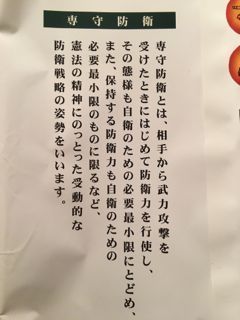 専守防衛
専守防衛とは、相手から武力攻撃を
受けたときにはじめて防衛力を行使し、
その態様も自衛のための必要最小限にとどめ、
また、保持する防衛力も自衛のための
必要最小限のものに限るなど、
憲法の精神にのっとった受動的な
防衛戦略の姿勢をいいます。